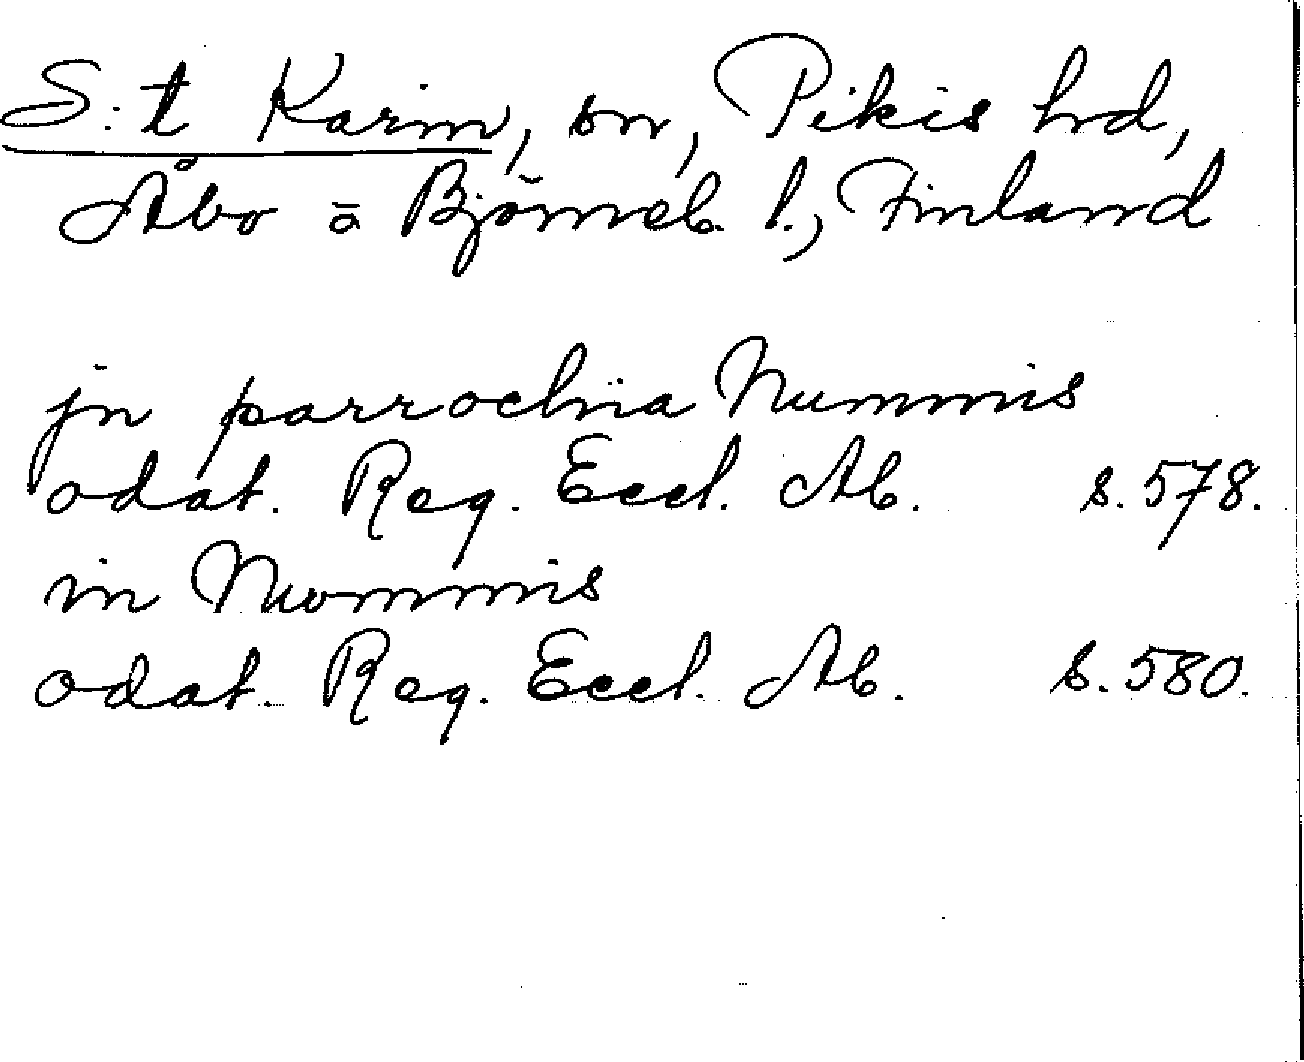 S:t Karin, sn, Pikis hd,
Åbo o Björneb. l., Finland
jn parrochia Nummis
odat. Reg. Eccl. Ab. s. 578.
in Nwmmis
odat. Reg. Eccl. Ab. s. 580.